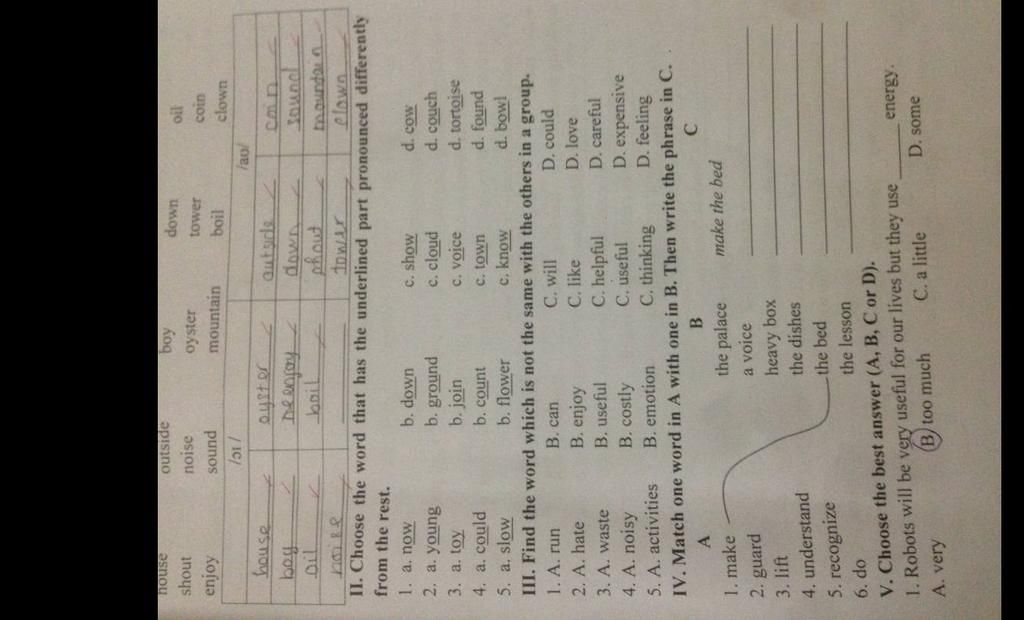 house outside boy down oil
shout noise oyster tower coin
enjoy sound mountain boil clown
/ɔɪ/ /aʊ/
house oyster outside coin
boy enjoy down sound
oil boil shout mountain
noise tower clown
II. Choose the word that has the underlined part pronounced differently
from the rest.
1. a. now b. down c. show d. cow
2. a. young b. ground c. cloud d. couch
3. a. toy b. join c. voice d. tortoise
4. a. could b. count c. town d. found
5. a. slow b. flower c. know d. bowl
III. Find the word which is not the same with the others in a group.
1. A. run B. can C. will D. could
2. A. hate B. enjoy C. like D. love
3. A. waste B. useful C. helpful D. careful
4. A. noisy B. costly C. useful D. expensive
5. A. activities B. emotion C. thinking D. feeling
IV. Match one word in A with one in B. Then write the phrase in C.
A B C
1. make the palace make the bed
2. guard a voice
3. lift heavy box
4. understand the dishes
5. recognize the bed
6. do the lesson
V. Choose the best answer (A, B, C or D).
1. Robots will be very useful for our lives but they use ______ energy.
A. very B) too much C. a little D. some